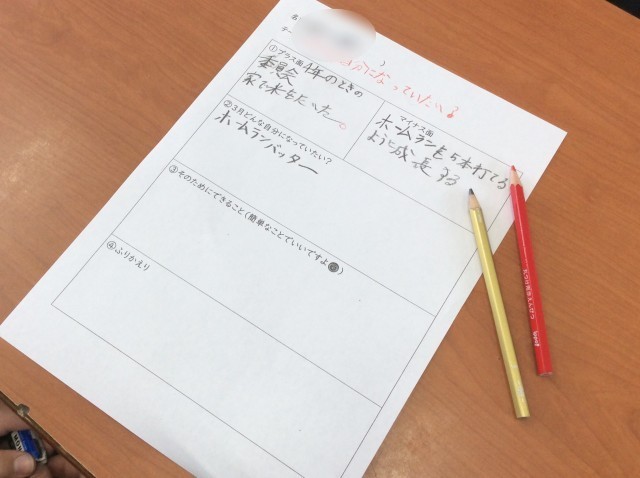 名
テー
)
分になっていたい?
①プラス面 4年のときの
委員会
家で米をたいた。
マイナス面
ホームランを5本打てる
ように成長する
②3月どんな自分になっていたい?
ホームランバッター
③そのためにできること(簡単なことでいいですよ)
④ふりかえり